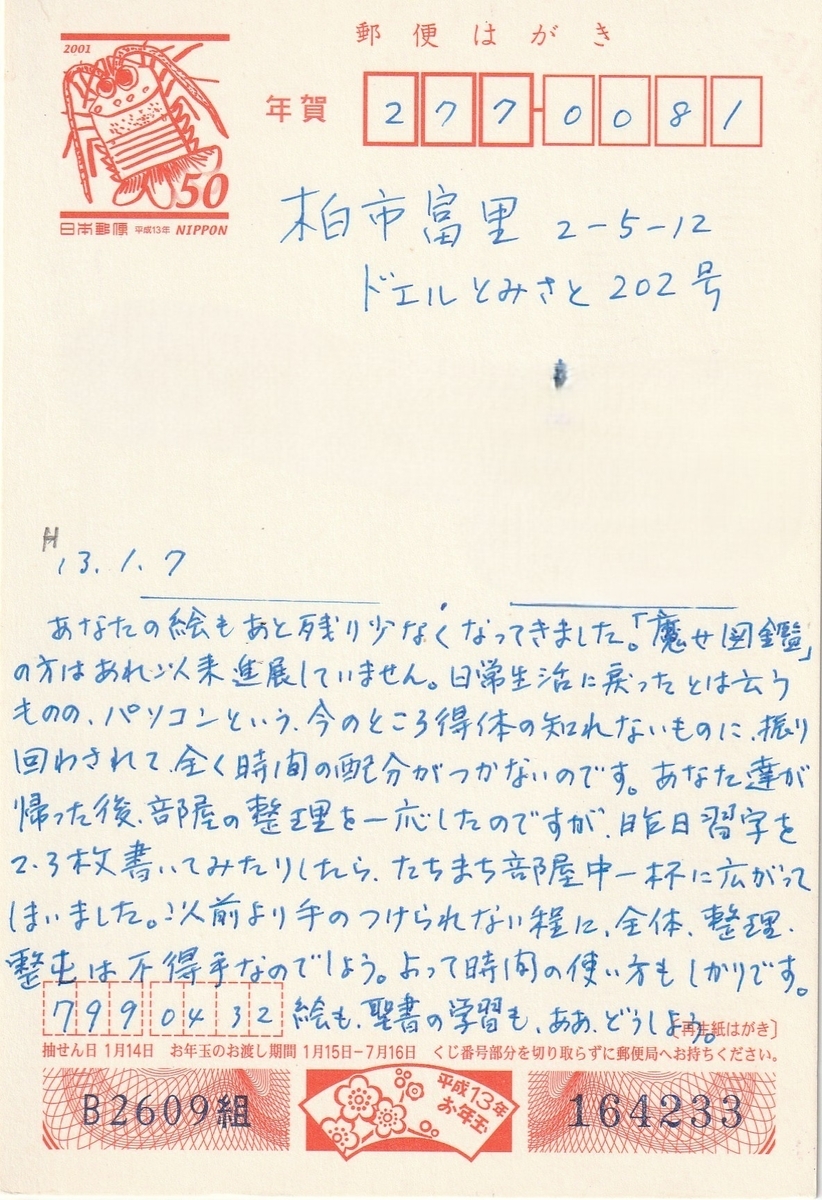 郵便はがき
2001
年賀
277-0081
50
日本郵便 平成13年 NIPPON
柏市富里 2-5-12
ドエルとみさと202号
H13.1.7
あなたの絵もあと残り少なくなってきました。「魔せ図鑑」
の方はあれ以来進展していません。日常生活に戻ったとは云う
ものの、パソコンという、今のところ得体の知れないものに、振り
回わされて、全く時間の配分がつかないのです。あなた達が
帰った後、部屋の整理を一応したのですが、昨日習字を
2.3枚書いてみたりしたら、たちまち部屋中一杯に広がって
しまいました。以前より手のつけられない程に、全体、整理、
整屯は不得手なのでしょう。よって時間の使い方もしかりです。
7990432 絵も、聖書の学習も、ああ、どうしよう。
〔再生紙はがき〕
抽せん日 1月14日 お年玉のお渡し期間 1月15日-7月16日 くじ番号部分を切り取らずに郵便局へお持ちください。
B2609組
平成13年
お年玉
164233